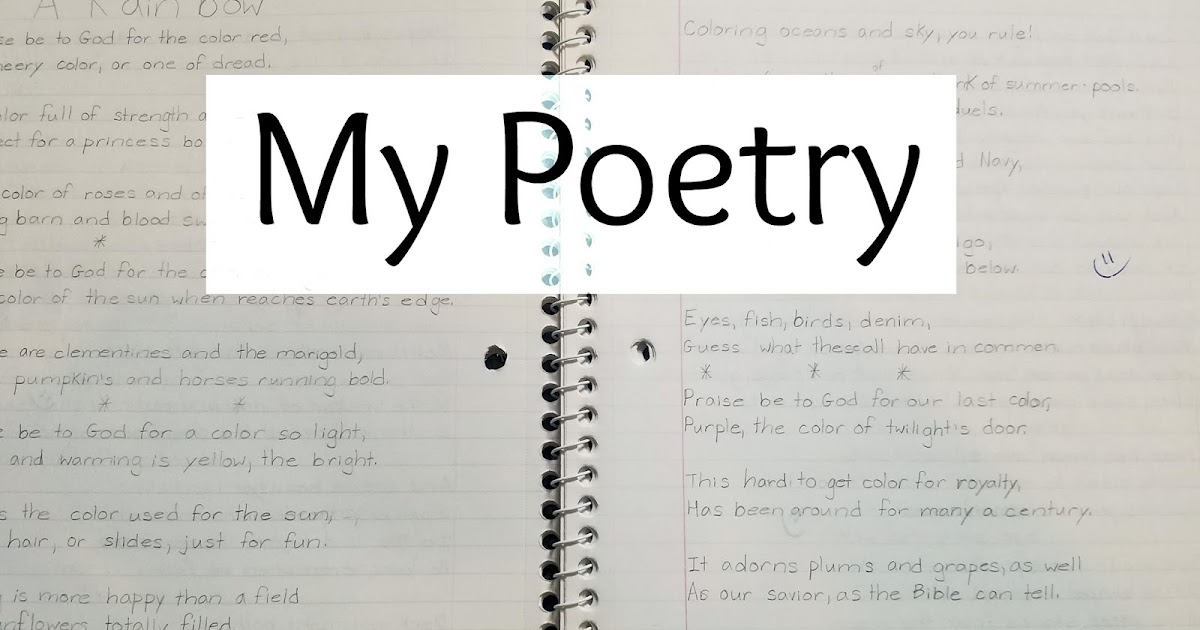 A Rainbow
se be to God for the color red,
heery color, or one of dread.
lor full of strength a
ect for a princess bo
color of roses and of
g barn and blood sw
e be to God for the c
color of the sun when reaches earth's edge.
e are clementines and the marigold,
pumpkin's and horses running bold.
e be to God for a color so light,
and warming is yellow, the bright.
s the color used for the sun,
hair, or slides, just for fun.
is more happy than a field
nflowers totally filled
My Poetry
Coloring oceans and sky, you rule!
of
nk of summer pools.
duels.
d Navy,
igo,
below.
Eyes, fish, birds, denim,
Guess what these all have in common.
Praise be to God for our last color,
Purple, the color of twilight's door.
This hard to get color for royalty,
Has been ground for many a century.
It adorns plums and grapes, as well
As our savior, as the Bible can tell.